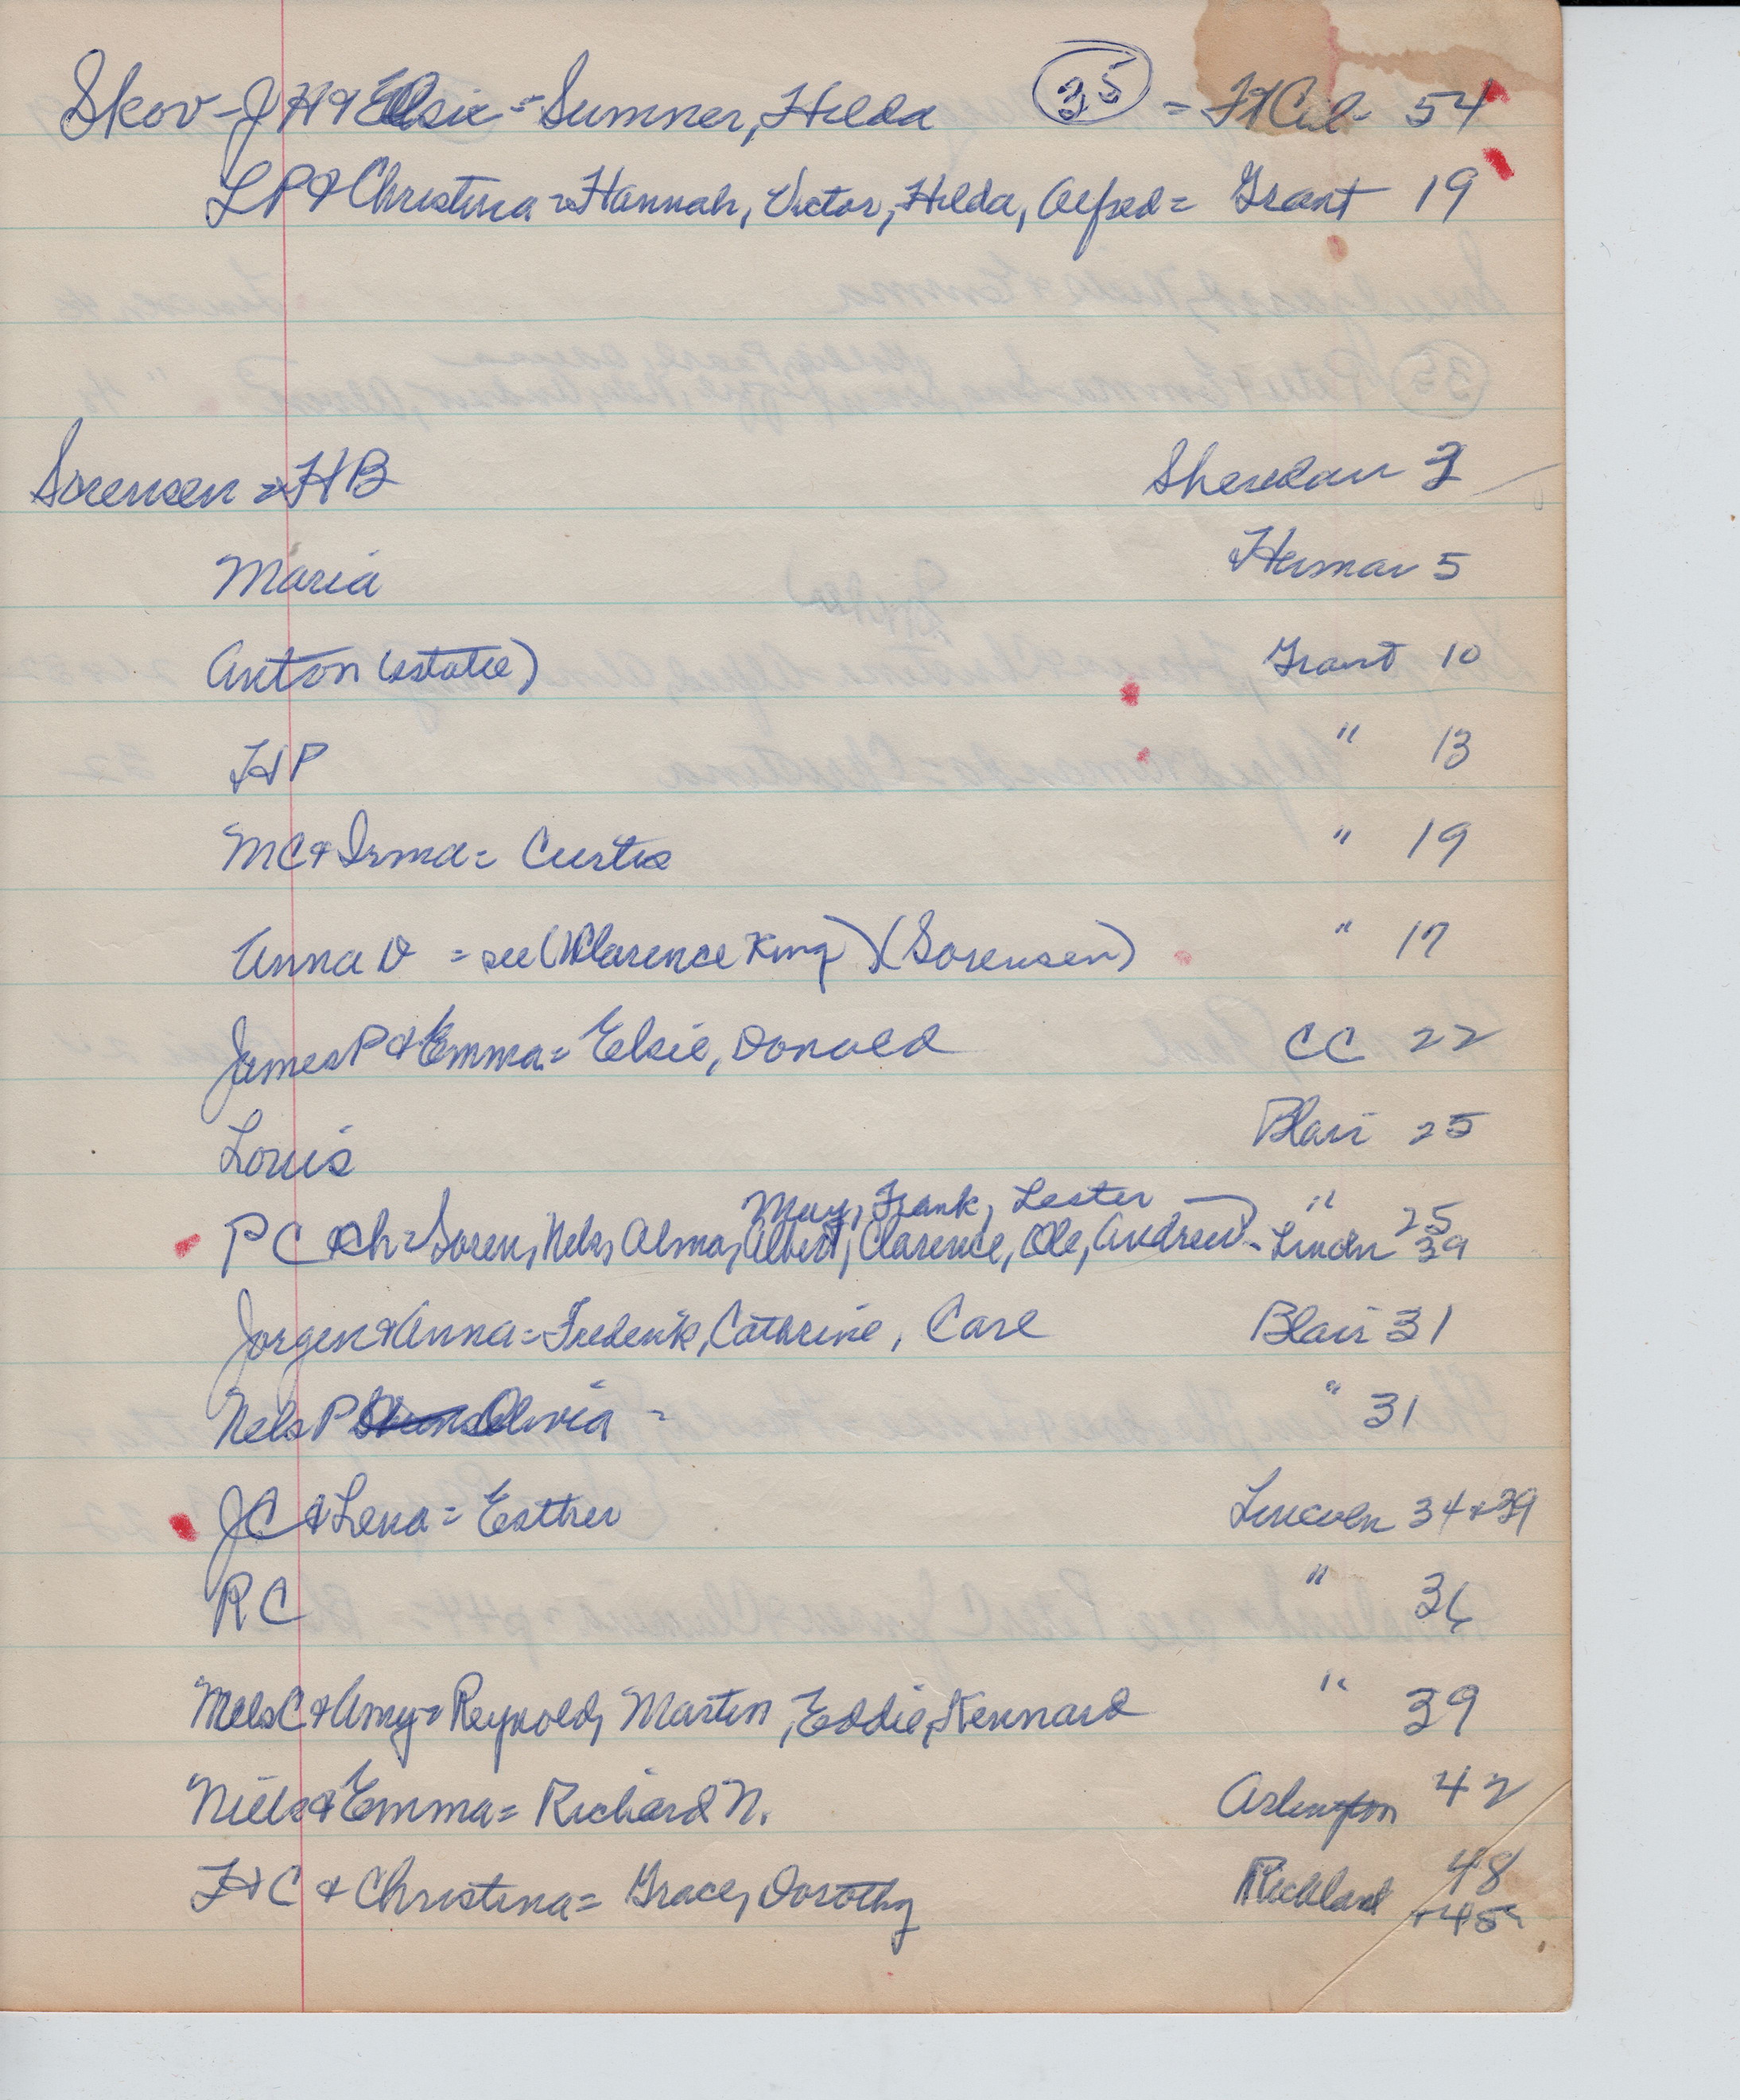 Skov - J H & Elsie = Sumner, Hilda (35) = Ft Cal - 54
L P & Christina = Hannah, Victor, Hilda, Alfred = Grant 19
Sorensen = H B Sheridan 3
Maria Herman 5
Anton (estate) Grant 10
H P " 13
M C & Irma = Curtis " 19
Anna D = see (Clarence King) (Sorensen) " 17
James P & Emma = Elsie, Donald CC 22
Louis Blair 25
May, Frank, Lester " 25
P C & Ch = Soren, Nels, Alma, Albert, Clarence, Ole, Andrew - Lincoln 39
Jorgen & Anna = Frederik, Cathrine, Carl Blair 31
Nels P Olivia = " 31
J C & Lena = Esther Lincoln 34 & 39
R C " 36
Nels C & Amy = Reynold, Martin, Eddie, Kennard " 39
Niels & Emma = Richard N. Arlington 42
H C & Christina = Grace, Dorothy Richland 48
+ 45